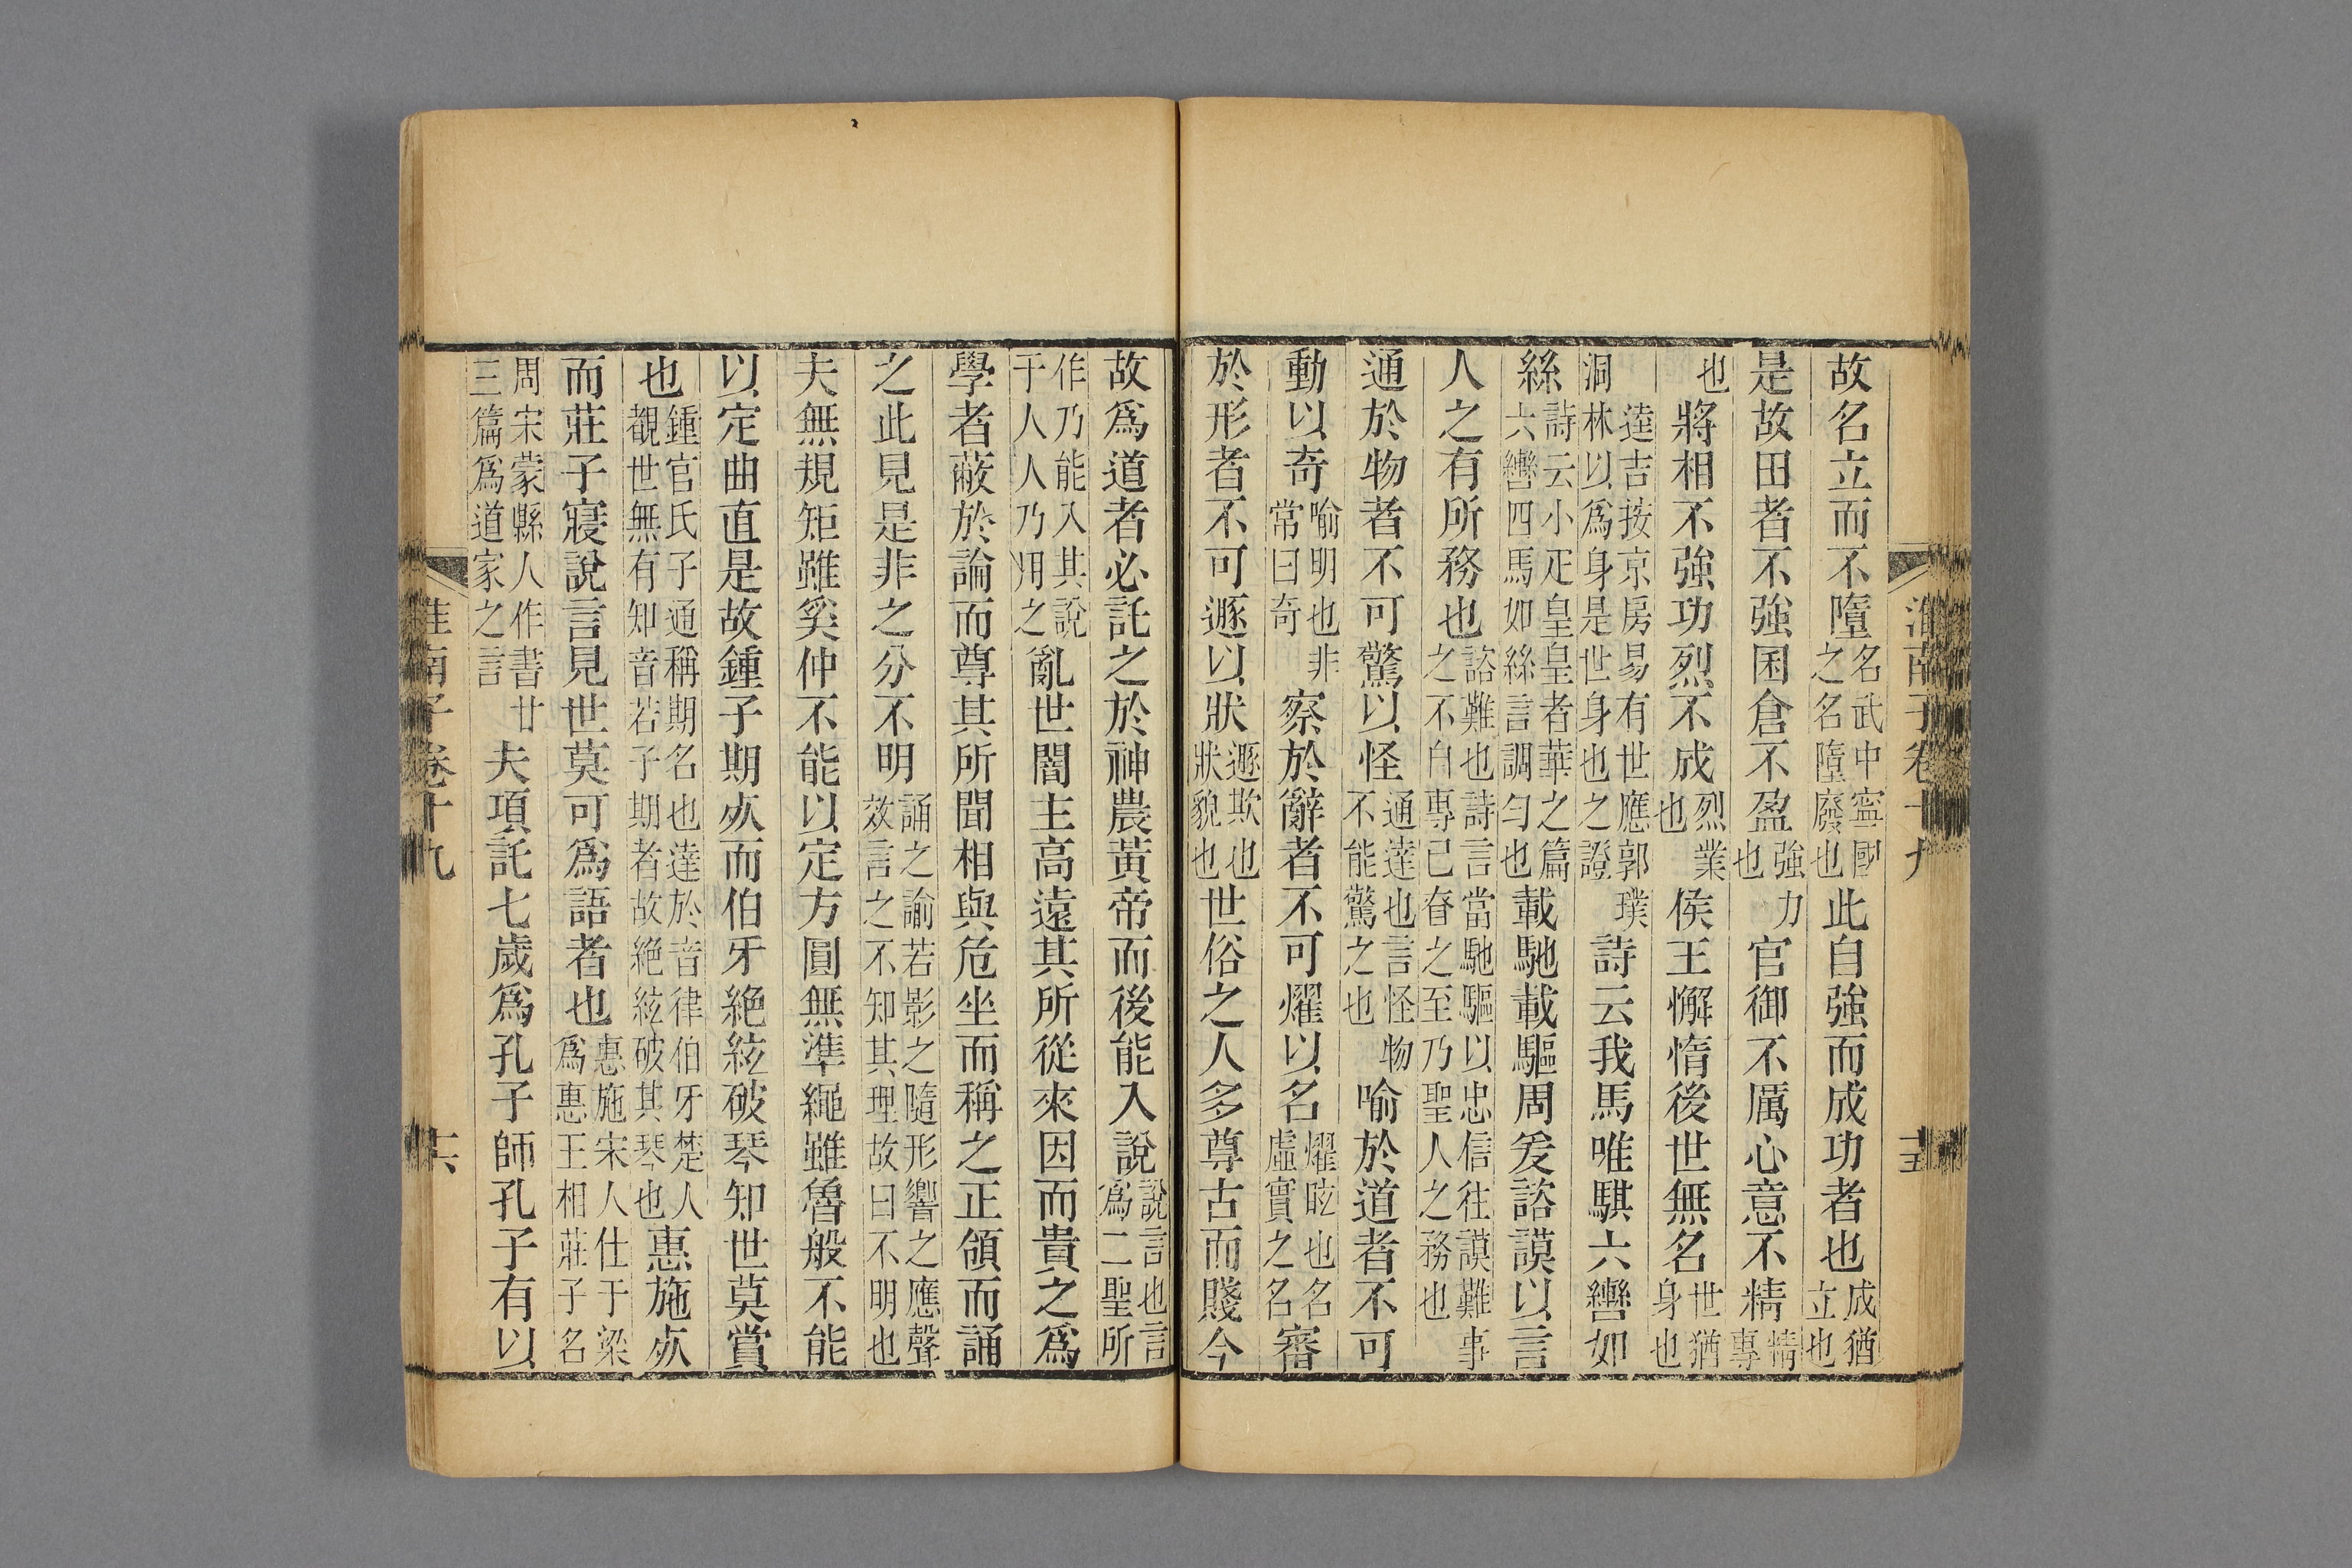 淮南子卷十九　十五
故名立而不墮名武中寧國之名墮廢也此自強而成功者也成猶立也
是故田者不強囷倉不盈強力也官御不厲心意不精精專
也將相不強功烈不成烈業也侯王懈惰後世無名世猶身也
逵吉按京房易有世應郭璞洞林以爲身是世身也之證詩云我馬唯騏六轡如
絲詩云小疋皇皇者華之篇六轡四馬如絲言調勻也載馳載驅周爰諮謨以言
人之有所務也諮難也詩言當馳驅以忠信往謨難事之不自專己昚之至乃聖人之務也
通於物者不可驚以怪通達也言怪物不能驚之也喻於道者不可
動以奇喻明也非常曰奇察於辭者不可燿以名燿眩也名虛實之名審
於形者不可遯以狀遯欺也狀貌也世俗之人多尊古而賤今
故爲道者必託之於神農黃帝而後能入說說言也言爲二聖所
作乃能入其說于人人乃用之亂世闇主高遠其所從來因而貴之爲
學者蔽於論而尊其所聞相與危坐而稱之正領而誦
之此見是非之分不明誦之諭若影之隨形響之應聲效言之不知其理故曰不明也
夫無規矩雖奚仲不能以定方圓無準繩雖魯般不能
以定曲直是故鍾子期𣦸而伯牙絕絃破琴知世莫賞
也鍾官氏子通稱期名也達於音律伯牙楚人觀世無有知音若子期者故絶絃破其琴也惠施𣦸
而莊子寢說言見世莫可爲語者也惠施宋人仕于梁爲惠王相莊子名
周宋蒙縣人作書廿三篇爲道家之言夫項託七歲爲孔子師孔子有以
淮南子卷十九　十六